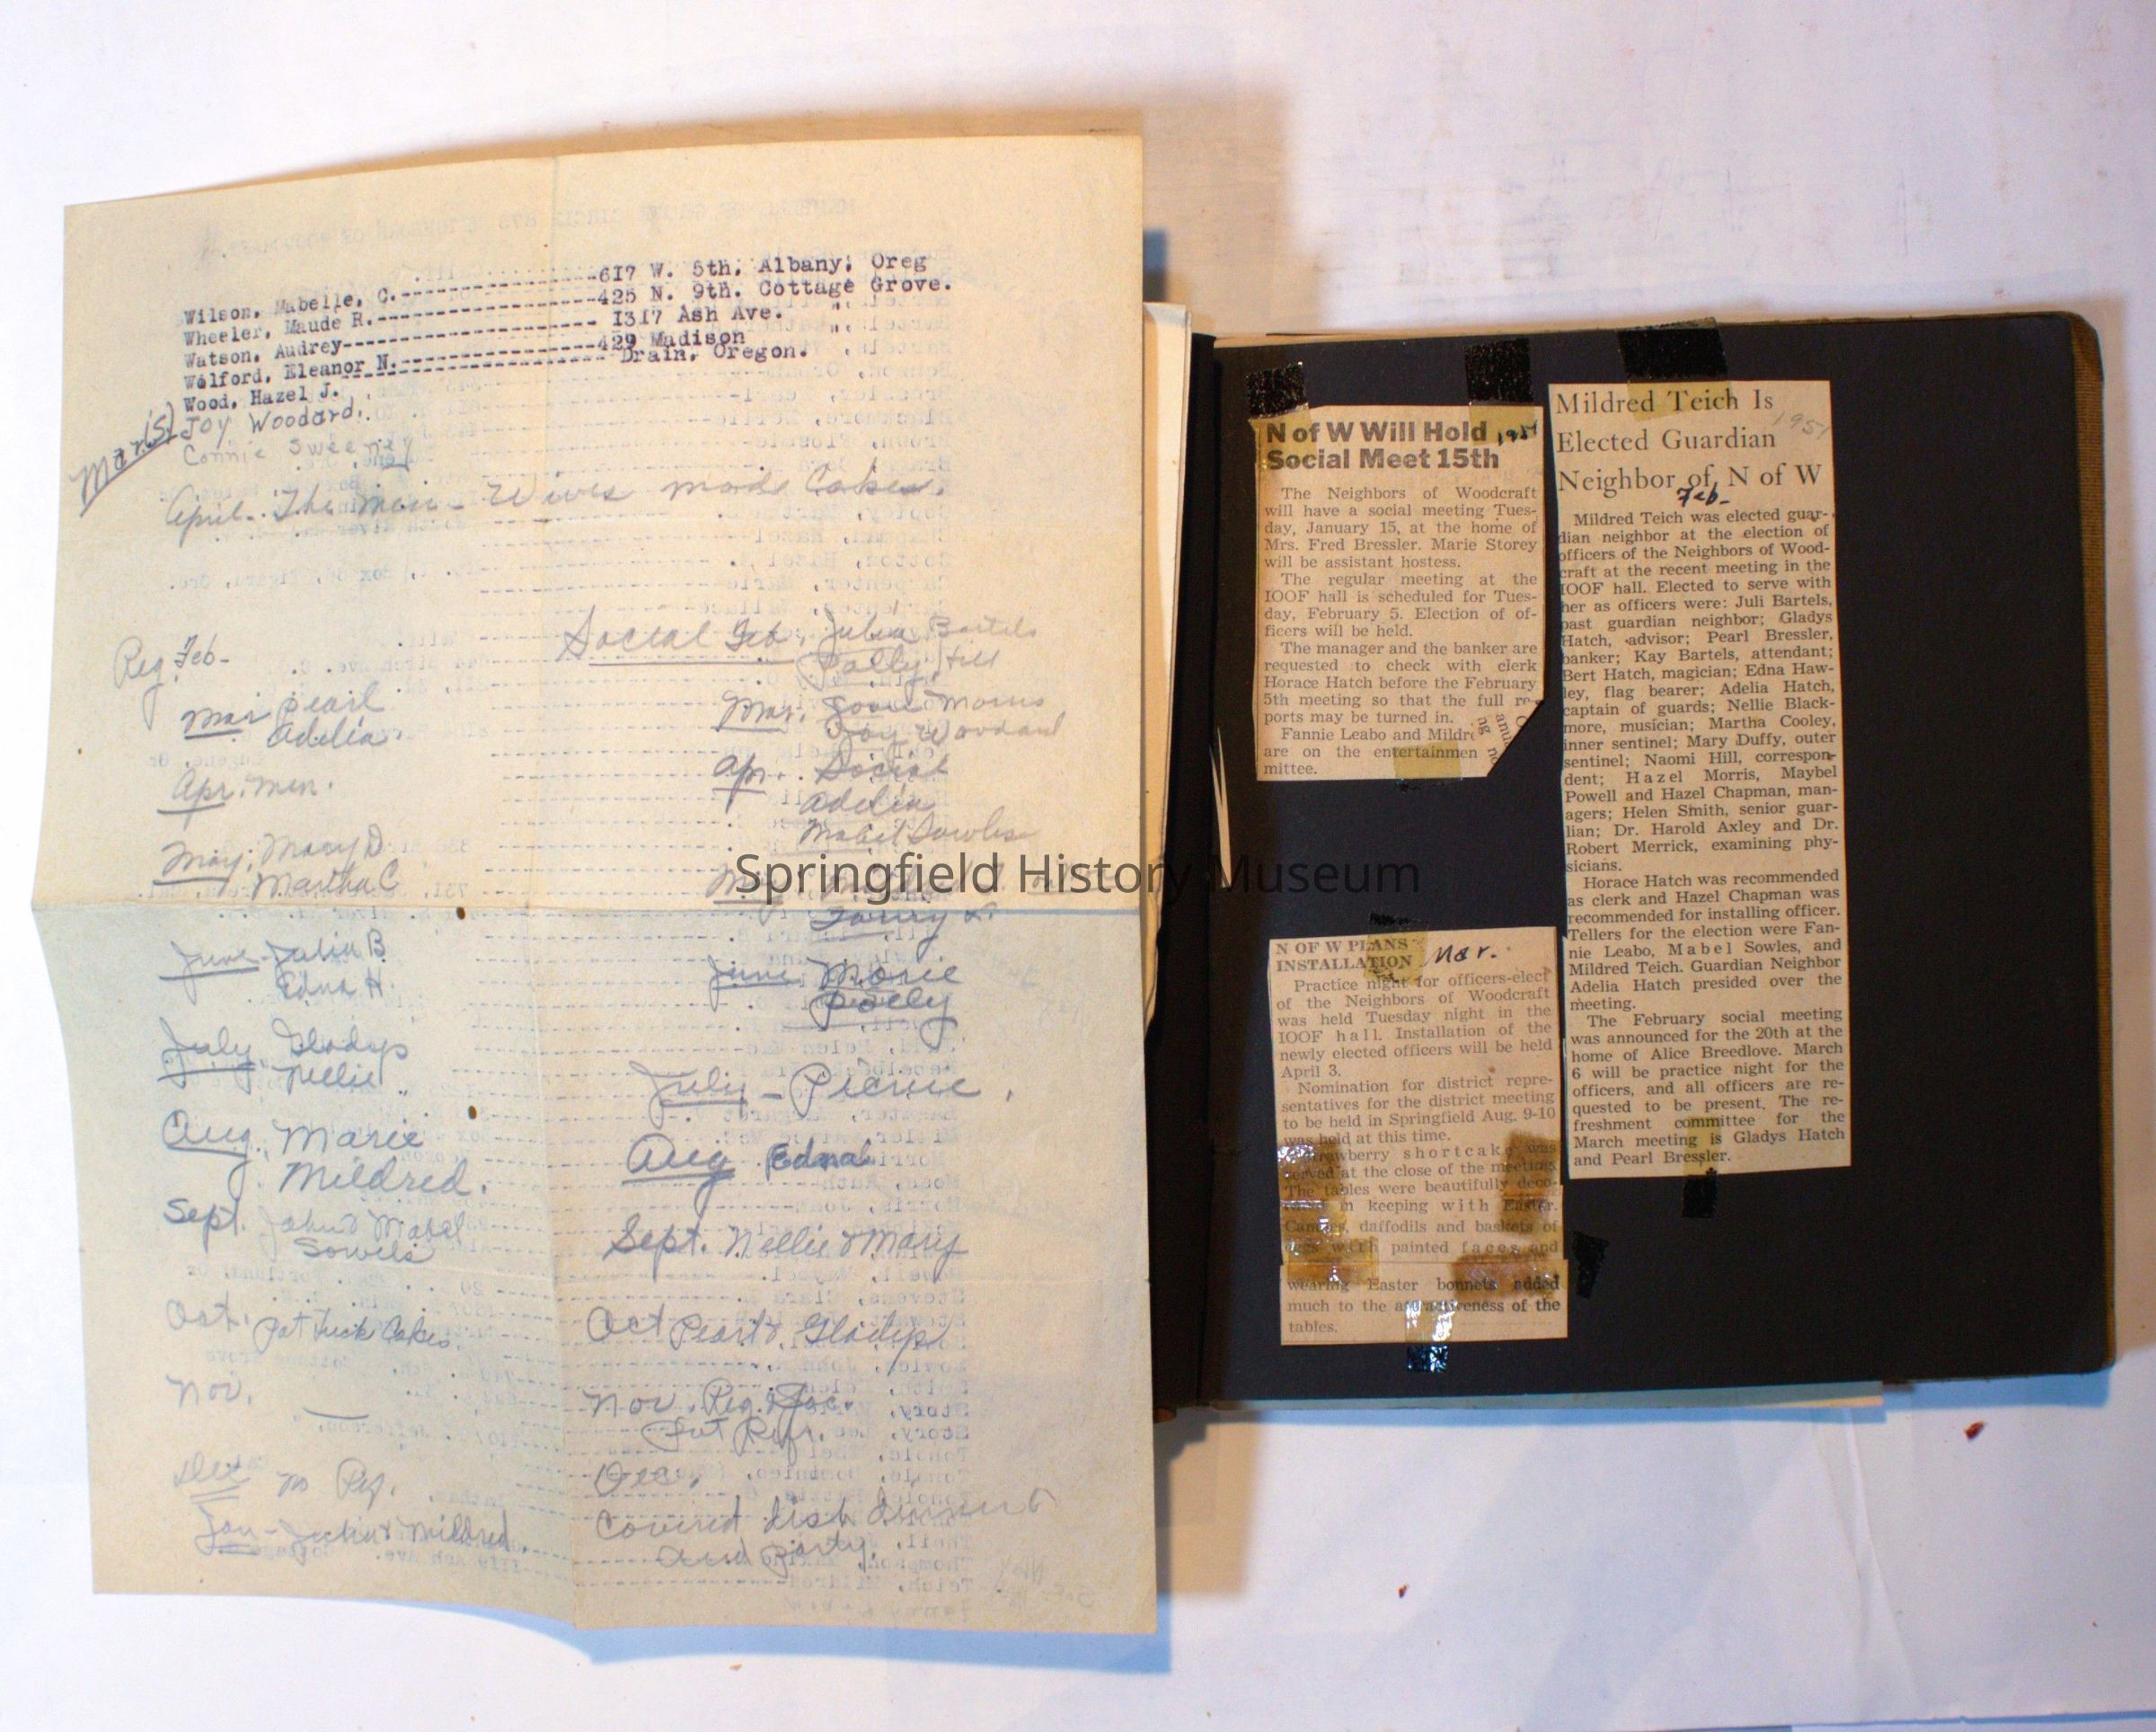 Wilson, Mabelle, C.--------------------617 W. 5th. Albany, Oreg
Wheeler, Maude R.--------------------425 N. 9th. Cottage Grove.
Watson, Audrey------------------------- 1317 Ash Ave. " "
Wolford, Eleanor N.--------------------429 Madison
Wood, Hazel J. ------------------------ Drain, Oregon.
Joy Woodard.
Connie Sweeney
April - The men - Wives made Cakes.
Reg. Feb-
Mar Pearl
Adelia.
Apr. men.
May; Mary D
Martha C
June - Julia B
Edna H.
July, Gladys
Nellie
Aug. Marie
Mildred.
Sept. John & Mabel
Sowels
Oct. Pot luck Cakes.
Nov.
Dec no Reg.
Jan - & Mildred.
Social Feb, Julia Bartels
Polly Hill
Mar. Morris
Joy Woodard
Apr. Social
Adelia
Mabel Sowles
June Marie
Polly
July - Picnic.
Aug Edna
Sept. Nellie & Mary
Oct Pearl & Gladys
Nov. Reg. & Soc.
Dec.
Covered dish dinner
and party.
Springfield History Museum
N of W Will Hold 1951
Social Meet 15th
The Neighbors of Woodcraft
will have a social meeting Tues-
day, January 15, at the home of
Mrs. Fred Bressler. Marie Storey
will be assistant hostess.
The regular meeting at the
IOOF hall is scheduled for Tues-
day, February 5. Election of of-
ficers will be held.
The manager and the banker are
requested to check with clerk
Horace Hatch before the February
5th meeting so that the full re-
ports may be turned in.
Fannie Leabo and Mildre
are on the entertainmen
mittee.
N OF W PLANS
INSTALLATION Mar.
Practice night for officers-elect
of the Neighbors of Woodcraft
was held Tuesday night in the
IOOF hall. Installation of the
newly elected officers will be held
April 3.
Nomination for district repre-
sentatives for the district meeting
to be held in Springfield Aug. 9-10
was held at this time.
Strawberry shortcake was
served at the close of the meeting.
The tables were beautifully deco-
rated in keeping with Easter.
Candles, daffodils and baskets of
eggs with painted faces and
wearing Easter bonnets added
much to the attractiveness of the
tables.
Mildred Teich Is
Elected Guardian 1951
Neighbor of N of W
Feb-
Mildred Teich was elected guar-
dian neighbor at the election of
officers of the Neighbors of Wood-
craft at the recent meeting in the
IOOF hall. Elected to serve with
her as officers were: Juli Bartels,
past guardian neighbor; Gladys
Hatch, advisor; Pearl Bressler,
banker; Kay Bartels, attendant;
Bert Hatch, magician; Edna Haw-
ley, flag bearer; Adelia Hatch,
captain of guards; Nellie Black-
more, musician; Martha Cooley,
inner sentinel; Mary Duffy, outer
sentinel; Naomi Hill, correspon-
dent; Hazel Morris, Maybel
Powell and Hazel Chapman, man-
agers; Helen Smith, senior guar-
lian; Dr. Harold Axley and Dr.
Robert Merrick, examining phy-
sicians.
Horace Hatch was recommended
as clerk and Hazel Chapman was
recommended for installing officer.
Tellers for the election were Fan-
nie Leabo, Mabel Sowles, and
Mildred Teich. Guardian Neighbor
Adelia Hatch presided over the
meeting.
The February social meeting
was announced for the 20th at the
home of Alice Breedlove. March
6 will be practice night for the
officers, and all officers are re-
quested to be present. The re-
freshment committee for the
March meeting is Gladys Hatch
and Pearl Bressler.